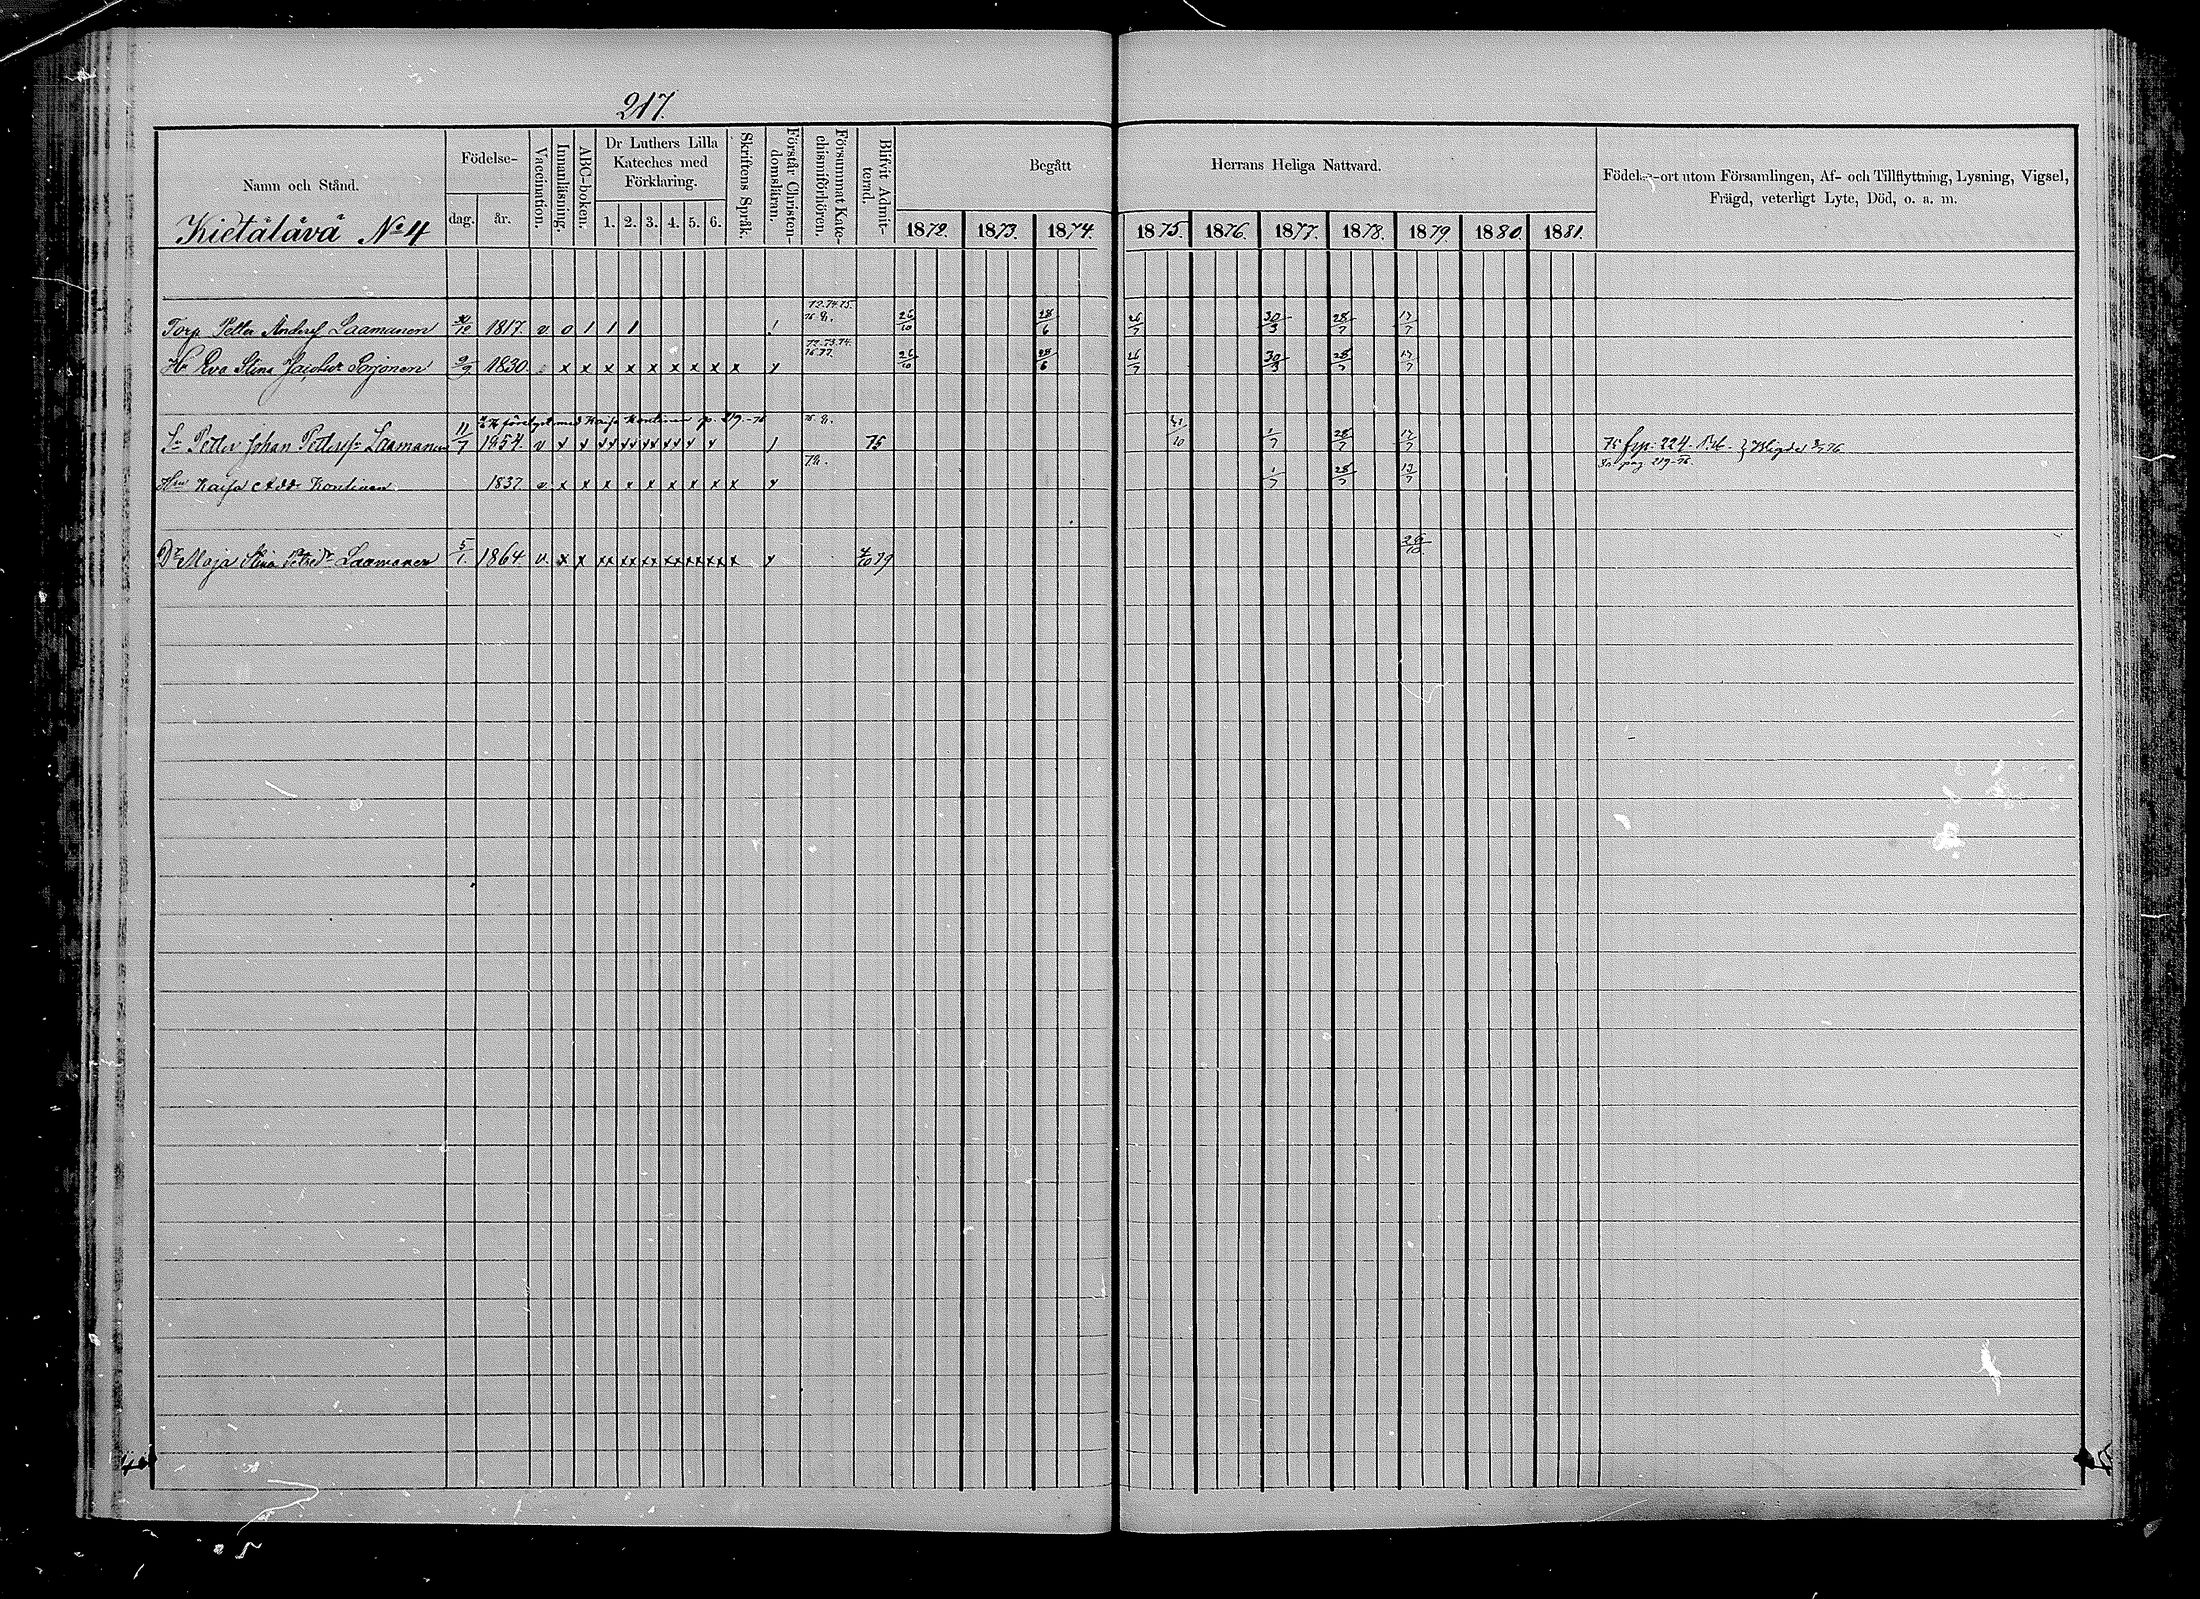 217.
Namn och Stånd.
Födelse-
dag.
år.
Vaccination.
Innanläsning.
ABC-boken.
Dr Luthers Lilla
Kateches med
Förklaring.
1. 2. 3. 4. 5. 6.
Skriftens Språk.
Förstår Christen-
domsläran.
Försummat Kate-
chismiförhören.
Blifvit Admit-
terad.
Begått Herrans Heliga Nattvard.
1872. 1873. 1874. 1875. 1876. 1877. 1878. 1879. 1880. 1881.
Födelse-ort utom Församlingen, Af- och Tillflyttning, Lysning, Vigsel,
Frägd, veterligt Lyte, Död, o. a. m.
Kietälävä No 4
72.74.75.
Torp Petter Anderss Laamanen 30/12 1817. v o 1 1 1 26/10 28/6 26/7 30/9 28/7 13/7
72.73.74.
76.77.
Hu Eva Stina Jacobsdr Sorjonen 9/9 1830. x x x x x x x x x 26/10 28/6 26/7 30/9 28/7 13/7
med Kaisa Kontinen p. 219-76
Sn Petter Johan Petterss Laamanen 11/7 1854. v 75 31/10 1/7 28/7 13/7 75 fr p. 224. Vigde 76
pag 219-76.
Hu Kaisa Kontinen 1837. v x x x x x x x x x 1/7 28/7 13/7
Dr Maja Stina Petterdr Laamanen 5/1. 1864. v. x x xx xx xx xx xx xx x 4/10 79 26/10